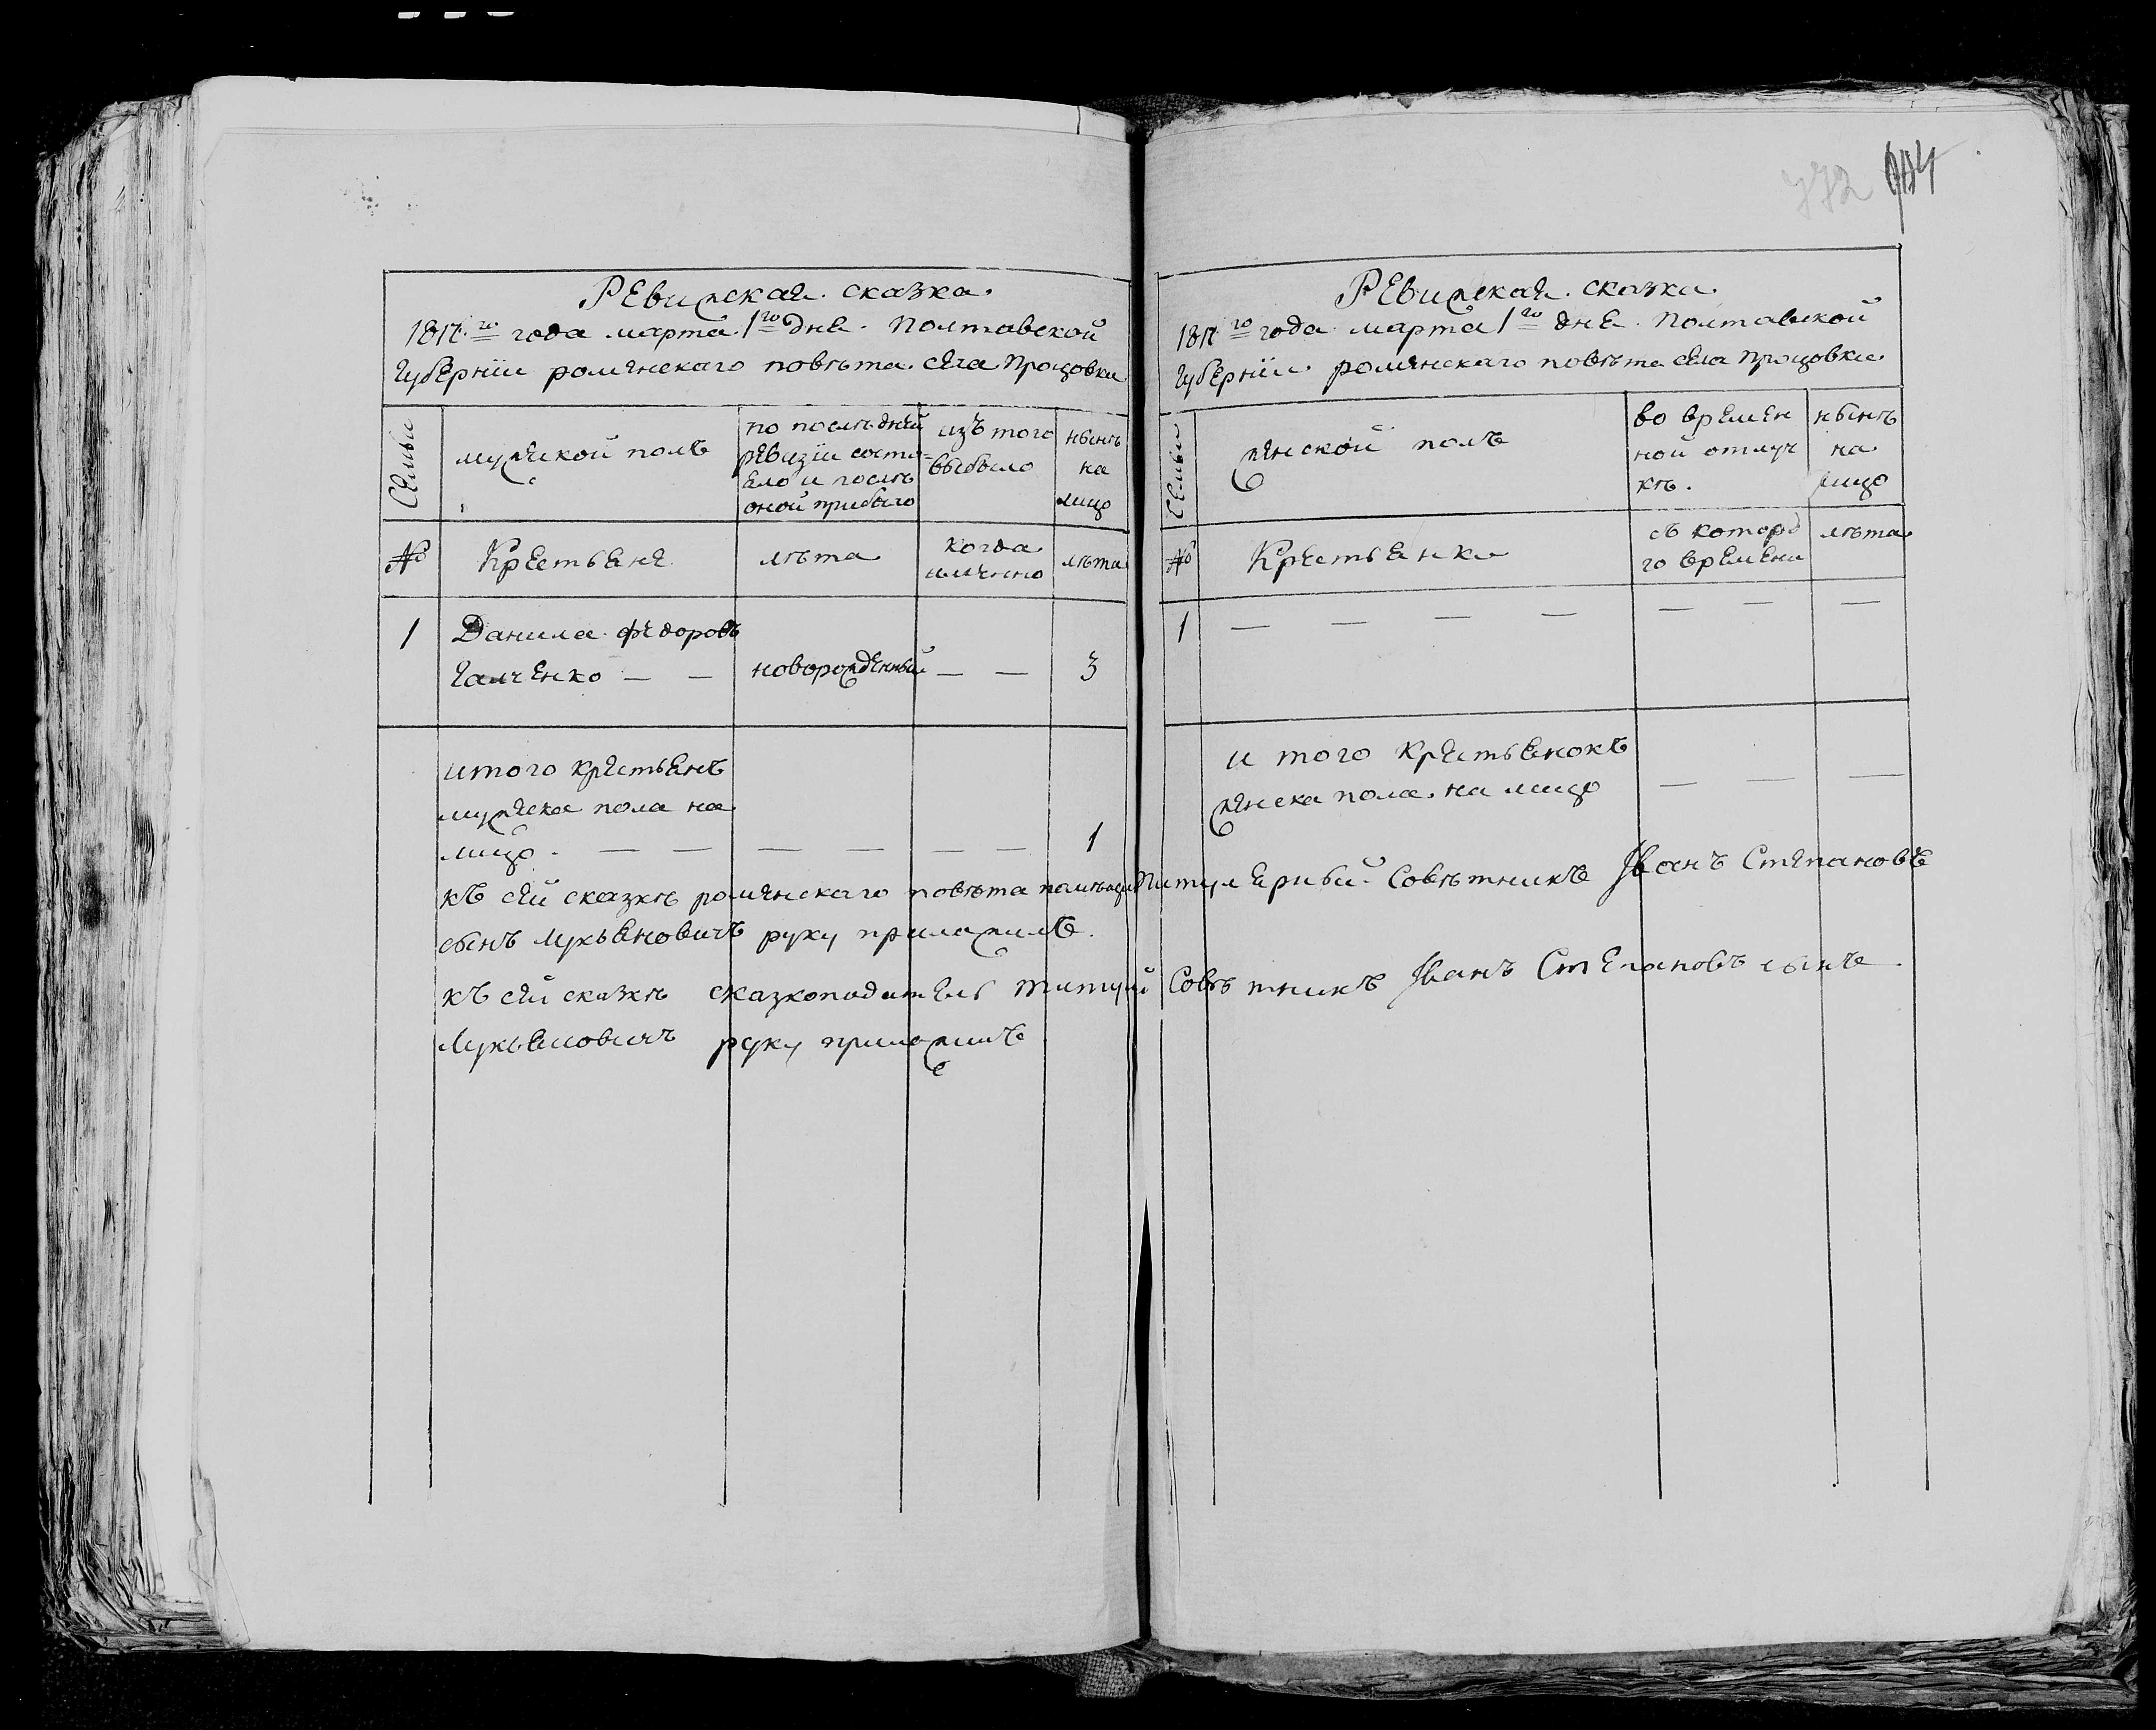 772
Ревизская сказка.
1817го года марта 1го дня. Полтавской
Губернiи роменскаго повѣта. села Процовки
Семьи
мужской полъ
по последней
ревизiи состо-
яло и послѣ
оной прибыло
изъ того
выбыло
нынѣ
на
лицо
№
Крестьяне
лѣта
когда
имянно
лѣта
1
Данила Федоровъ
Галченко — — новорожденный — — 3
итого крестьянъ
мужеска пола на
лицо — — — — — — 1
Ревизская сказка.
1817го года марта 1го дня. Полтавской
Губернiи роменскаго повѣта села Процовки
Семьи
женской полъ
во времен
ной отлуч
кѣ.
нынѣ
на
лицо
№
Крестьянки
съ которо
го времени
лѣта
1 — — — — — — —
и того крестьянокъ
женска пола на лицо — — —
къ сей сказкѣ роменскаго повѣта помѣщикъ Титулярный Совѣтникъ Iванъ Степановъ
сынъ Лукьяновичъ руку приложилъ.
къ сей сказкѣ сказкоподатель титул Совѣтникъ Iванъ Степановъ сынъ
Лукьяновичъ руку приложилъ